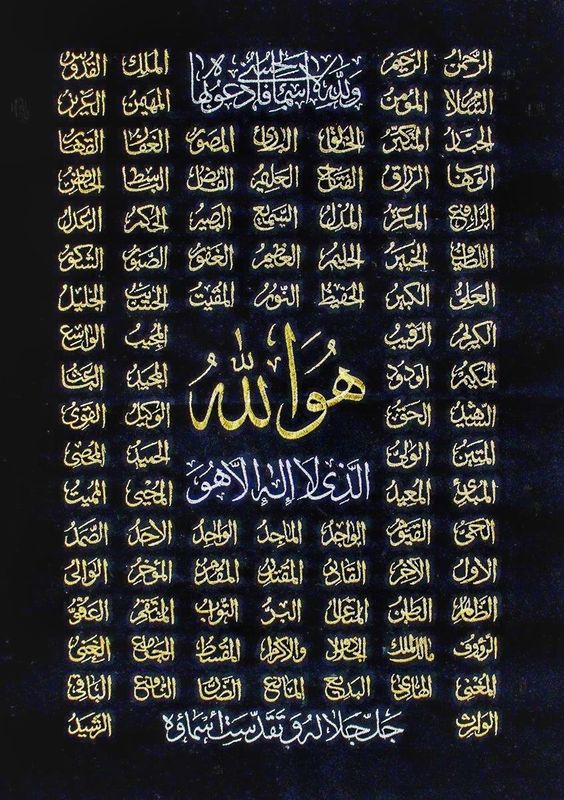 الرحمن الرحيم ولله الاسماء الحسنى فادعوه بها الملك القدوس
السلام المؤمن المهيمن العزيز
الجبار المتكبر الخالق البارئ المصور الغفار القهار
الوهاب الرزاق الفتاح العليم القابض الباسط الخافض
الرافع المعز المذل السميع البصير الحكم العدل
اللطيف الخبير الحليم العظيم الغفور الصبور الشكور
العلى الكبير الحفيظ النور المقيت الحسيب الجليل
الكريم الرقيب المجيب الواسع
الحكيم الودود المجيد الباعث
هُوَ اللّٰهُ
الشهيد الحق الوكيل القوى
المتين الولى الحميد المحصى
الذى لا إله إلا هو
المبدئ المعيد المحيى المميت
الحى القيوم الواجد الماجد الواحد الاحد الصمد
الاول الاخر القادر المقتدر المقدم المؤخر الوالى
الظاهر الباطن المتعالى البر التواب المنتقم العفو
الرؤوف مالك الملك ذوالجلال والاكرام المقسط الجامع الغنى
المغنى الهادى البديع المانع الضار النافع الباقى
الوارث جل جلاله وتقدست أسماؤه الرشيد